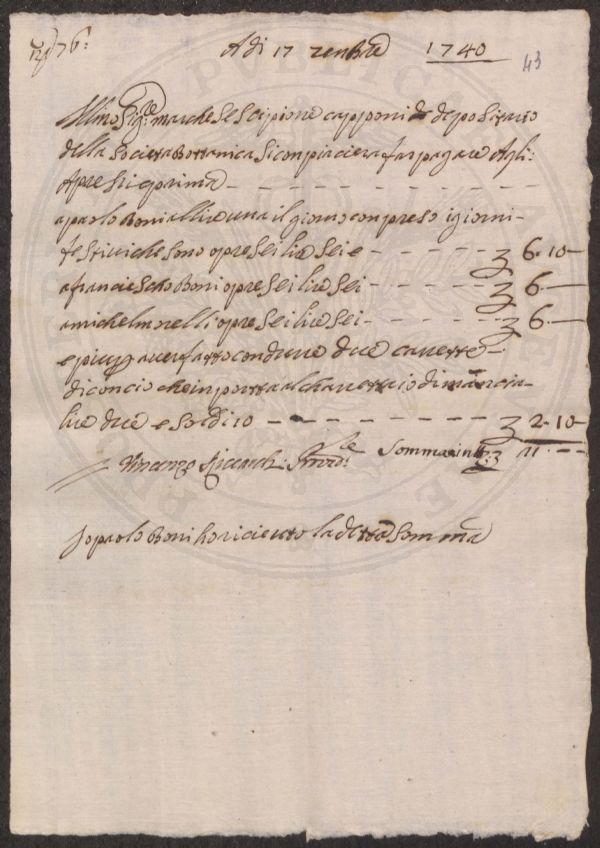 Adi 17 xenbre 1740
43
Ill:mo Sig:re marchese Scipione capponi depositario
della Società Bottanica si conpiacierà far pagare Agli
Apresi e prima
a paolo Boni a llire una il giorno conpreso i giorni
festivi che sono opre sei lire sei e 6. 10
a franciescho Boni opre sei lire sei 6.
a michel morelli opre sei lire sei 6.
e piu p aver fatto condurre due carrette
di concio che inportta al charettaio di mancia
lire due e soldi 10 2. 10
Sommario 21.
Io paolo Boni ho ricieuto la detta somma